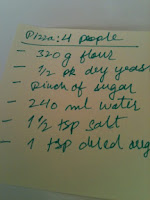 Pizza: 4 people
- 320 g flour
- 1/2 pk dry yeast
- pinch of sugar
- 240 ml water
- 1 1/2 tsp salt
- 1 tsp dried